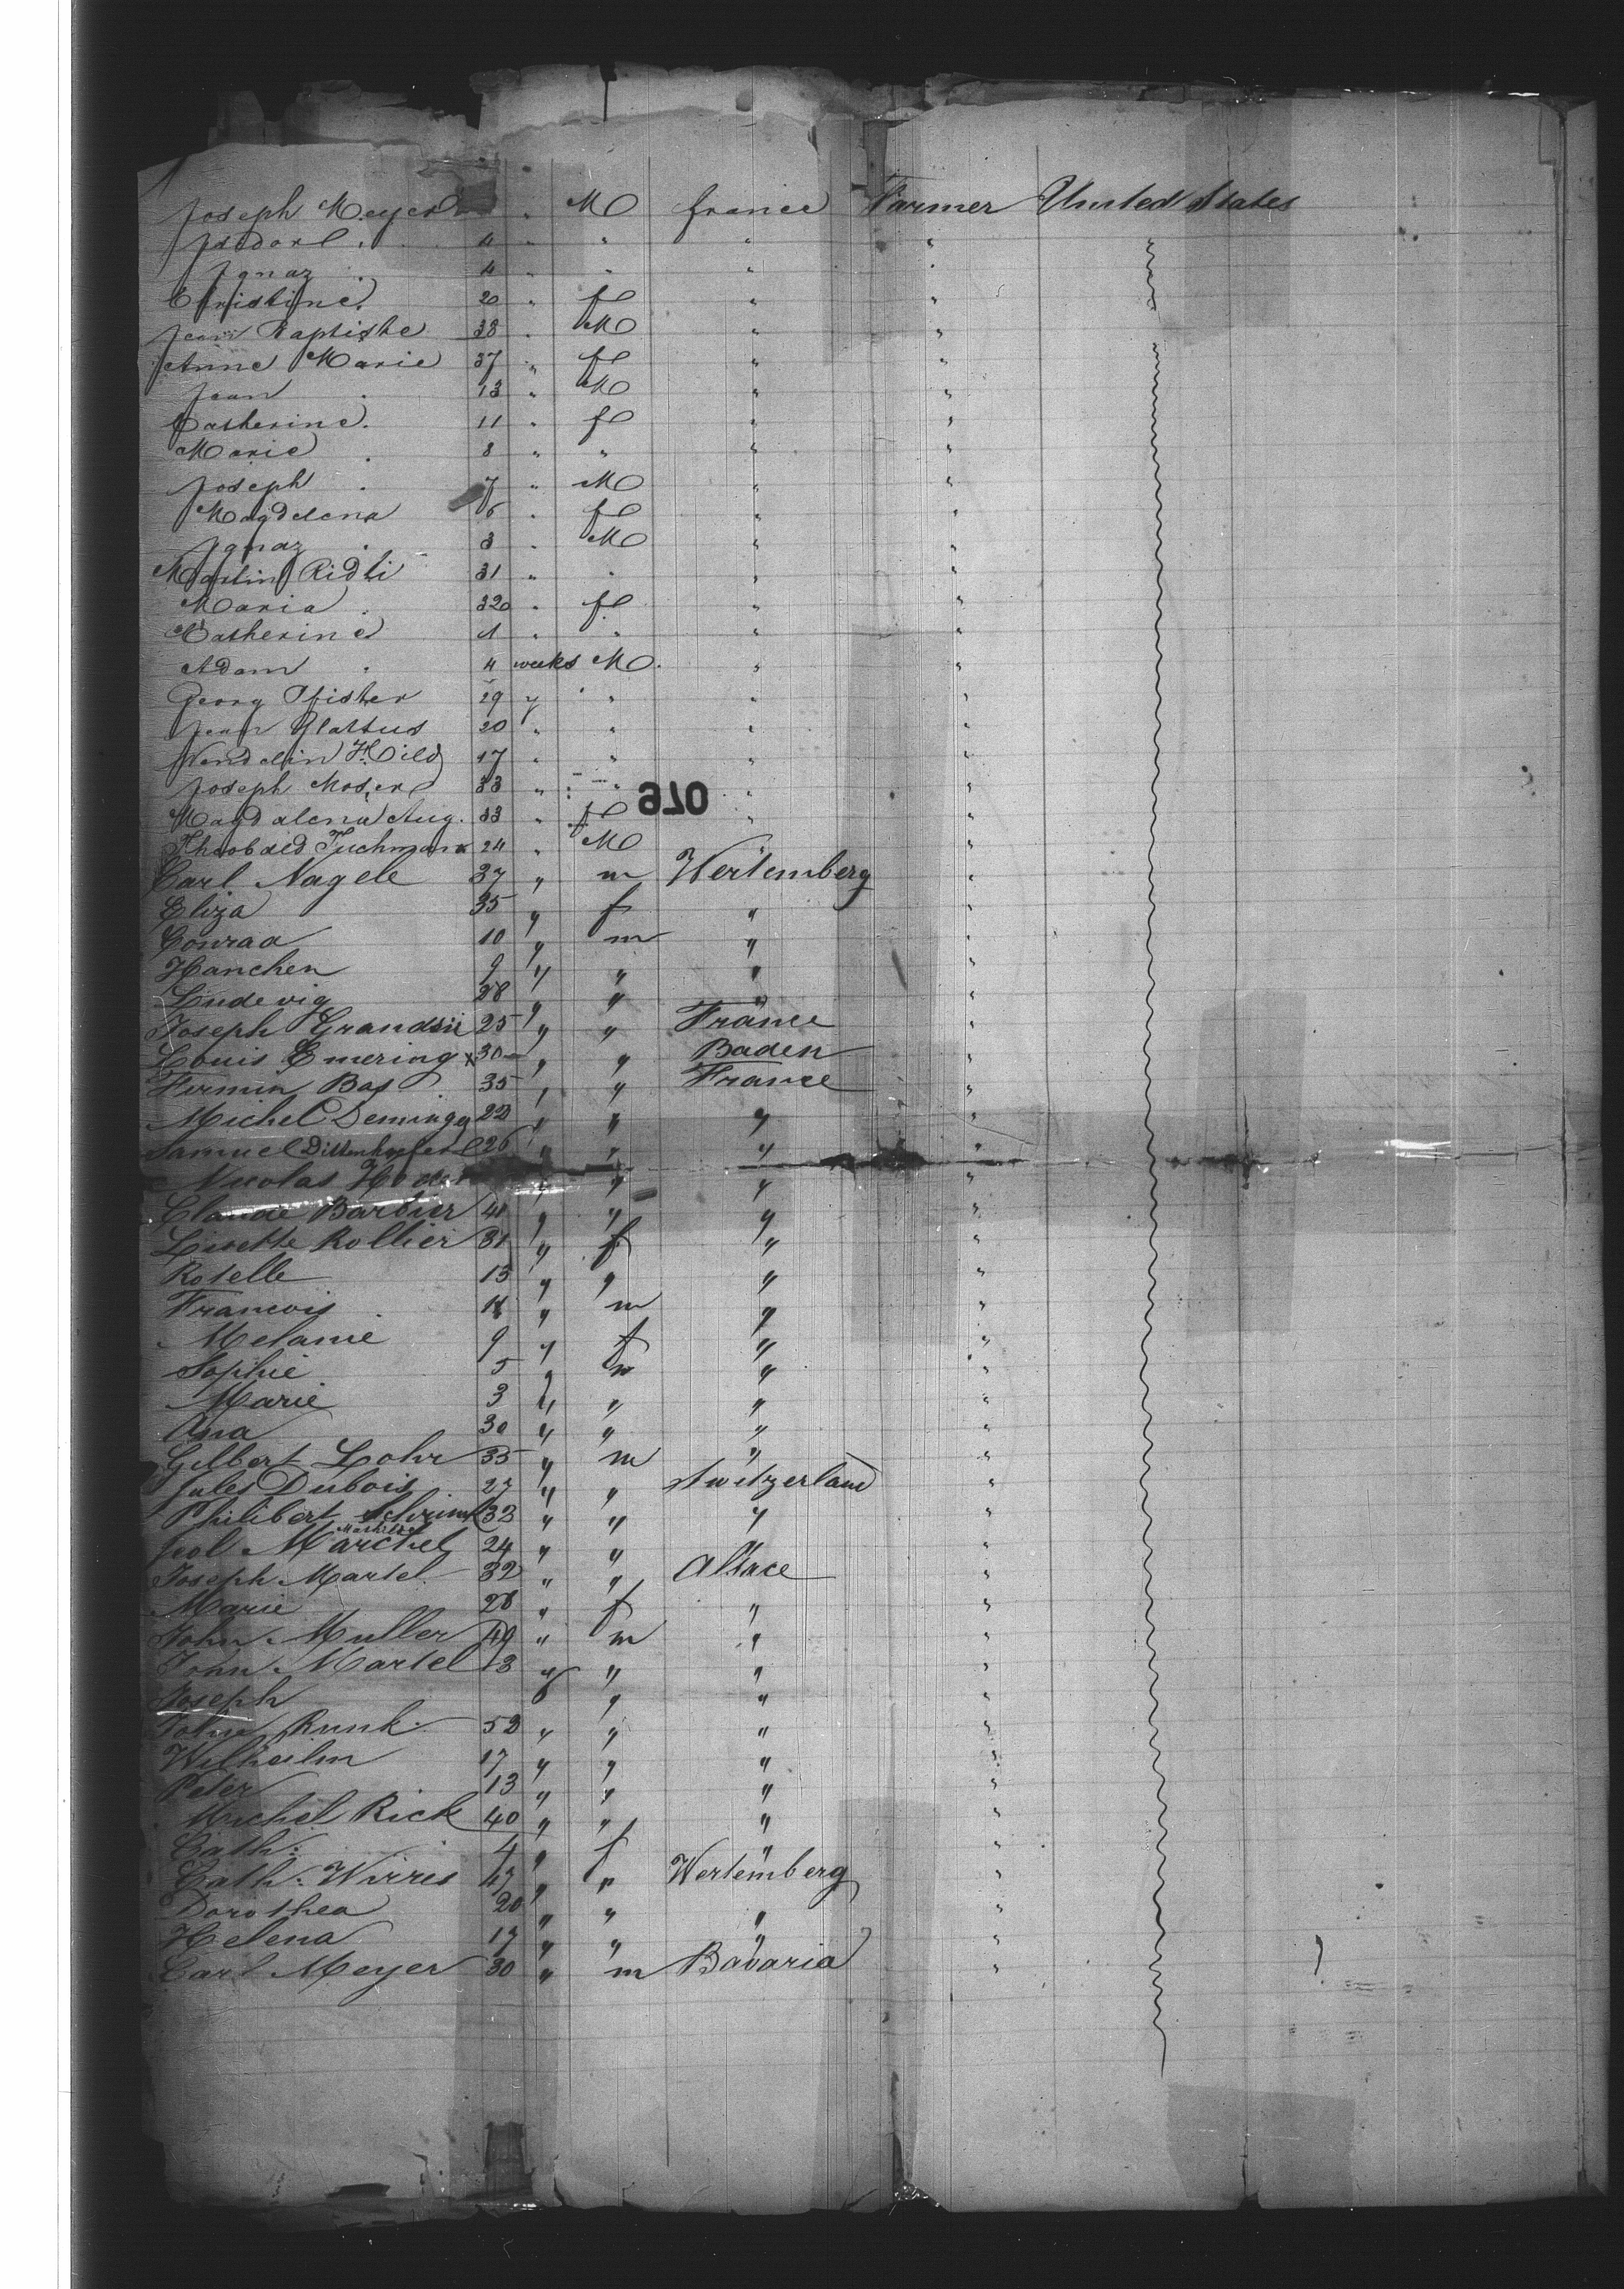 Joseph Meyer " M france Farmer United States
Isidore . 4 " " " "
Ignaz . 4 " " " "
Christine . 20 " f " "
Jean Baptiste 38 " M " "
Anne Marie 37 " f " "
Jean . 13 " M " "
Catherine . 11 " f " "
Marie . 8 " " " "
Joseph . 7 " M " "
Magdelena 6 " f " "
Ignaz . 3 " M " "
Martin Ridli 31 " " " "
Maria . 32 " f " "
Catherine 1 " " " "
Adam . 4 weeks M " "
Georg Pfister 29 y " " "
Jean Glattus 20 " " " "
Wendelin Hild 17 " " " "
Joseph Moser 33 " " " "
076
Magdalena Aug. 33 " f " "
Theobald Tuchmann 24 " M "
Carl Nagele 37 " m Wertemberg "
Eliza 35 " f " "
Conrad 10 " m " "
Hanchen 9 " " " "
Ludevig 28 " " " "
Joseph 25 " " France "
Louis Emering x 30 " " Baden "
Firmin Bas 35 " " France "
Michel 22 " " " "
Samuel 26 " " " "
Nicolas " " " "
Claude Barbier 41 " " " "
Lisette Rollier 31 " f " "
Roselle 13 " " " "
Francois . 11 " m " "
Melanie 9 " f " "
Sophie 5 " " " "
Marie 3 " " " "
Ana 30 " " " "
Gilbert Lohr 35 " m " "
Jules Dubois 27 " " Switzerland "
Philibert 32 " " " "
Marchel 24 " " "
Joseph Martel 32 " " Alsace "
Marie 28 " f " "
John Muller 49 " m " "
John Martel 13 " " " "
Joseph " " "
John Runk 52 " " " "
Wilheilm 17 " " " "
Peter 13 " " " "
Michel Rick 40 " " " "
Cath: 4 " f " "
Cath: Wirres 47 " " Wertemberg "
Dorothea 20 " " " "
Helena 17 " " " "
Carl Meyer 30 " m Bavaria "